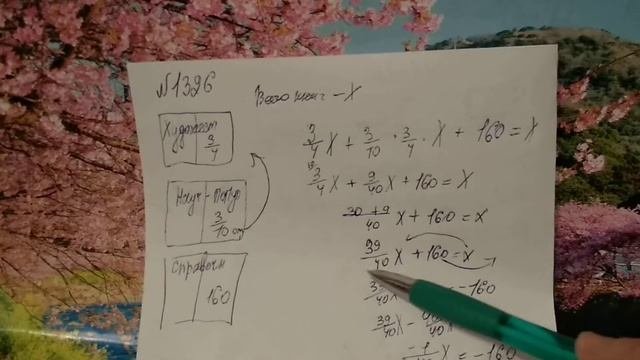 №1326
Всего книг - X
Худ лит
3/4
Науч - Попул
3/10 от
Справочн
160
3/4 X + 3/10 · 3/4 · X + 160 = X
3/4 X + 9/40 X + 160 = X
30 + 9/40 X + 160 = X
39/40 X + 160 = X
= -160
39/40 X -
-1 X = -160